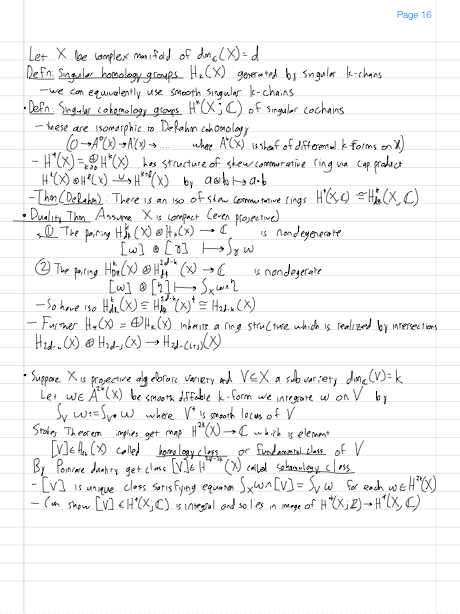 Page 16
Let X be complex manifold of dim_ℂ(X)=d
Defn: Singular homology groups H_k(X) generated by singular k-chains
- we can equivalently use smooth singular k-chains
• Defn: Singular cohomology groups H^k(X;ℂ) of singular cochains
- these are isomorphic to DeRham cohomology
(0→A^0(X)→A^1(X)→..... where A^k(X) is sheaf of differential k-forms on X)
- H^*(X)=⊕_{k≥0} H^k(X) has structure of skew commutative ring via cap product
H^k(X)⊗H^l(X) →^∪ H^{k+l}(X) by a⊗b ↦ a·b
- Thm (DeRham): There is an iso of skew commutative rings H^*(X,ℂ) ≅ H^*_{dR}(X,ℂ)
• Duality Thm. Assume X is compact (even projective)
① The pairing H^k_{dR}(X)⊗H_k(X) → ℂ is nondegenerate.
[ω] ⊗ [γ] ↦ ∫_γ ω
② The pairing H^k_{dR}(X)⊗H^{2d-k}_{dR}(X) → ℂ is nondegerate
[ω] ⊗ [η] ↦ ∫_X ω∧η
- So have iso H^k_{dR}(X) ≅ H^{2d-k}_{dR}(X)^* ≅ H_{2d-k}(X)
- Further H_*(X) = ⊕H_k(X) inherits a ring structure which is realized by intersections
H_{2d-i}(X) ⊗ H_{2d-j}(X) → H_{2d-(i+j)}(X)
• Suppose X is projective algebraic variety and V⊆X a subvariety dim_ℂ(V)=k
Let ω∈A^{2k}(X) be smooth diffable k-form we integrate ω on V by
∫_V ω := ∫_{V*} ω where V* is smooth locus of V
Stokes Theorem implies get map H^{2k}(X)→ℂ which is element
[V]∈H_{2k}(X) called homology class or fundamental class of V
By Poincare duality get class [V]∈H^{2d-2k}(X) called cohomology class
- [V] is unique class satisfying equation ∫_X ω∧[V] = ∫_V ω for each ω∈H^{2k}(X)
- Can show [V]∈H^*(X;ℂ) is integral and so lies in image of H^*(X;ℤ)→H^*(X,ℂ)